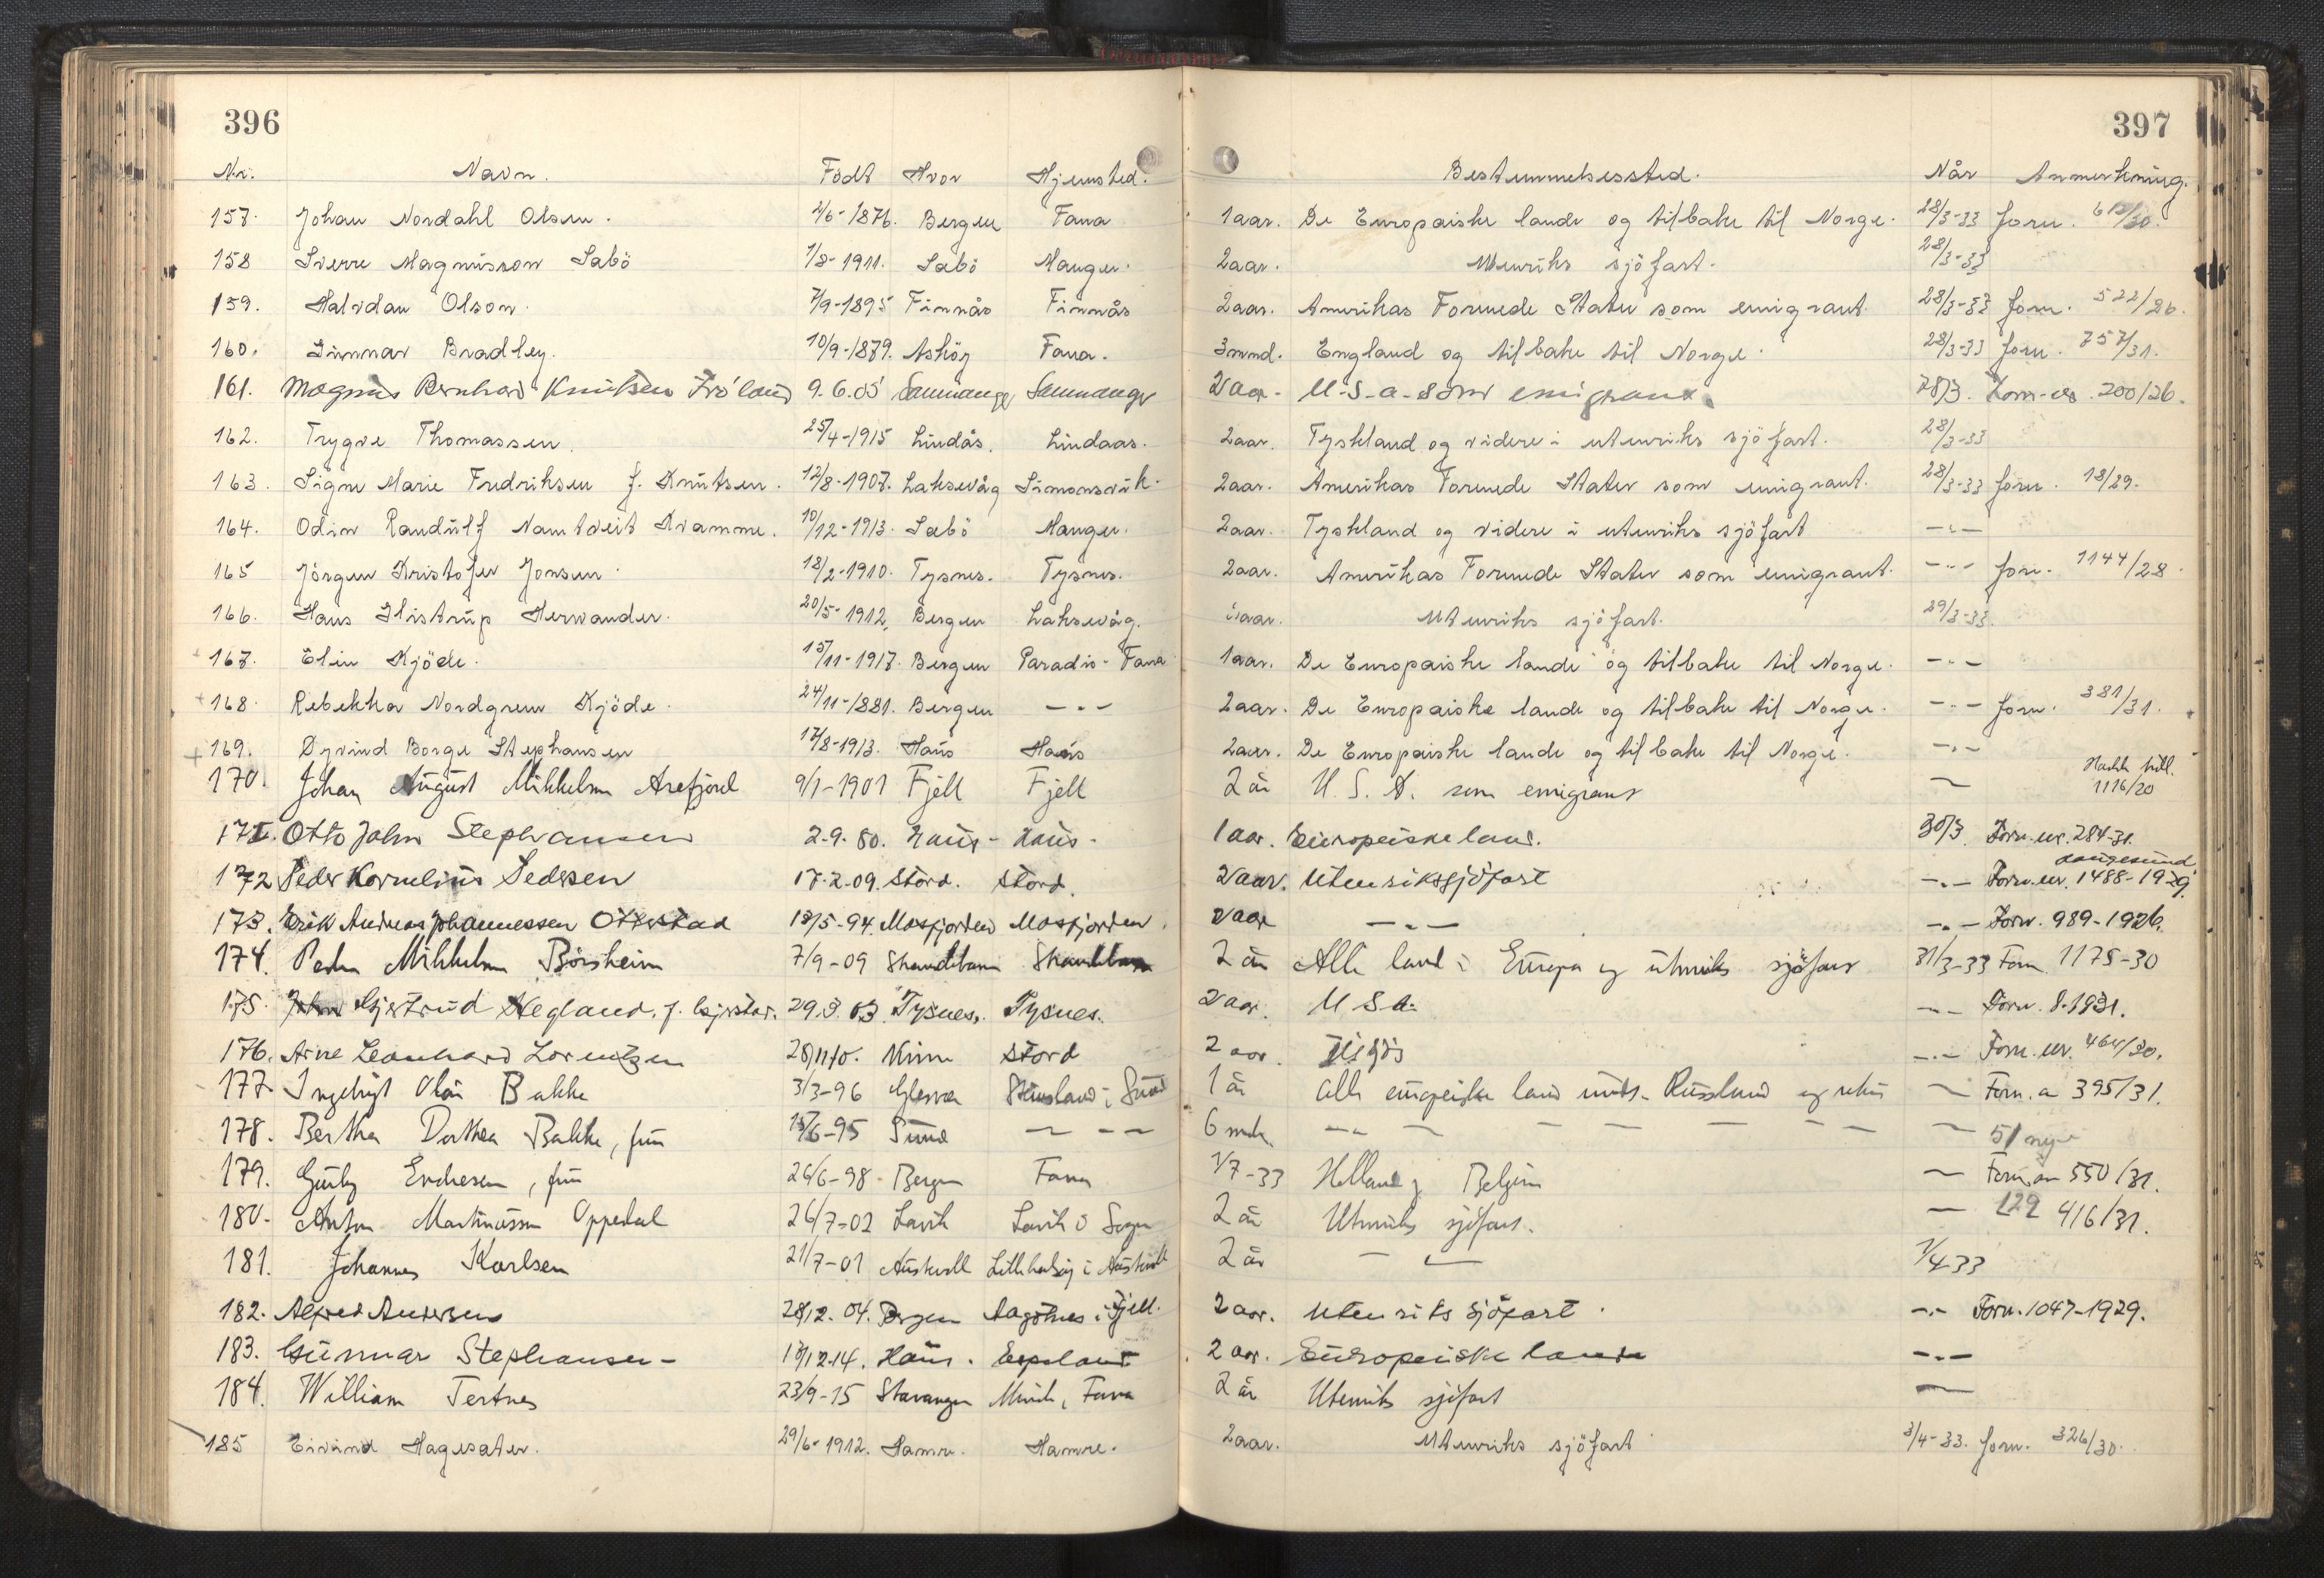 396
397
Nr. Navn. Födt Hvor Hjemsted. Bestemmelsessted. Når Anmerkning.
157. Johan Nordahl Olsen. 2/6-1876. Bergen Fana 1aar. De Europaiske lande og tilbake til Norge. 28/3-33 forn.
158 Sverre Magnusson Sabö 1/8-1911. Sabö Manger. 2aar. Utenriks sjöfart. 28/3-33
159. Halvdan Olson. 7/9-1895 Finnås Finnås 2aar. Amerikas Forenede Stater som emigrant. 28/3-33 forn. 522/26.
160. Gunnar Bradley. 10/9-1879. Asköy Fana. 3mnd. England og tilbake til Norge. 28/3-33 forn. 757/31.
161. Magnus Bernhard Knutsen Fröland 9.6.05 Samnanger Samnanger 2aar. U.S.a. som emigrant. 28/3. Forn-es. 200/26.
162. Trygve Thomassen. 25/4-1915 Lindås. Lindaas. 2aar. Tyskland og videre i utenriks sjöfart. 28/3-33
163. Signe Marie Fredriksen f. Knutsen. 12/8-1907. Laksevåg Simonsvik. 2aar. Amerikas Forenede Stater som emigrant. 28/3-33 forn. 18/29.
164. Odin Randulf Namtveit Kvamme. 10/12-1913. Sæbö Manger. 2aar. Tyskland og videre i utenriks sjöfart -"-
165 Jörgen Kristofer Jonsen. 18/2-1910. Tysnes. Tysnes. 2aar. Amerikas Forenede Stater som emigrant. -"- forn. 1144/28.
166. Hans Histrup Herwander. 20/5-1912, Bergen Laksevåg. aar. Utenriks sjöfart. 29/3-33.
167. Elin Kjöde. 15/11-1917. Bergen Paradis-Fana 1aar. De Europaiske lande og tilbake til Norge. -"-
+ 168. Rebekka Nordgreen Kjöde. 24/11-1881. Bergen -"- 2aar. De Europaiske lande og tilbake til Norge. -"- forn. 381/31.
+ 169. Öyvind Borge Stephansen 17/8-1913. Haus Haus 2aar. De Europaiske lande og tilbake til Norge. -"-
170. Johan August Mikkelsen Arefjord 9/1-1901 Fjell Fjell 2 år U.S.A. som emigrant 1116/20
171. Otto John Stephansen 2-9-80. Haus- Haus- 1 aar. Europeiske land. 30/3. Forn.nr. 284-31.
172 Peder Kornelius Pedersen 17-2-09. Stord. Stord. 2aar. Utenrikssjöfart -"- Forn.nr. 1488-1929
173. Erik Andreas Johannessen Otterstad 13/5-94. Masfjorden Masfjorden. 2aar -"- -"- Forn. 989-1926.
174. Peder Mikkelsen Börsheim 7/9-09 2 år Alle land i Europa og utenriks sjöfart 31/3-33 Forn 1175-30
175. Gjertrud Hegland, f. 29.3.03. Tysnes. Tysnes. 2aar. USA. -"- Forn. 8-1931.
176. Arne Leonhard Lorentzen Kinn Stord 2 aar. -"- Forn. nr. 464/30.
177. Ingebrigt Olai Bakke 3/3-96 Glesvær i Sund 1 år alle europeiske land unt. Russland og retur Forn. 395/31.
178. Bertha Dorthea Bakke, frue 15/6-95 Sund 6 mdr. 51 nye
179. Endresen, frue 26/6-98 Bergen Fana 1/7-33 Holland og Belgien Forn. 550/31.
180. Anton Martinussen Oppedal 26/7-02 Lavik Lavik i Sogn 2 år Utenriks sjöfart. 122 416/31.
181. Johannes Karlsen 21/7-01 Austevoll i Austevoll 2 år 1/4 33
182. Alfred Andersen 28/12.04. Bergen Aagotnes i Fjell. 2 aar. Utenriks sjöfart. -"- Forn. 1047-1929.
183. Gunnar Stephansen- Haus. Espeland 2 aar. Europeiske lande -"-
184. William Tertnes 23/9-15 Stavanger Minde, Fana 2 år Utenriks sjöfart
185 Eivind Hagesæter. 29/6-1912. Hamre. Hamre. 2aar. Utenriks sjöfart 3/4-33. forn. 326/30.